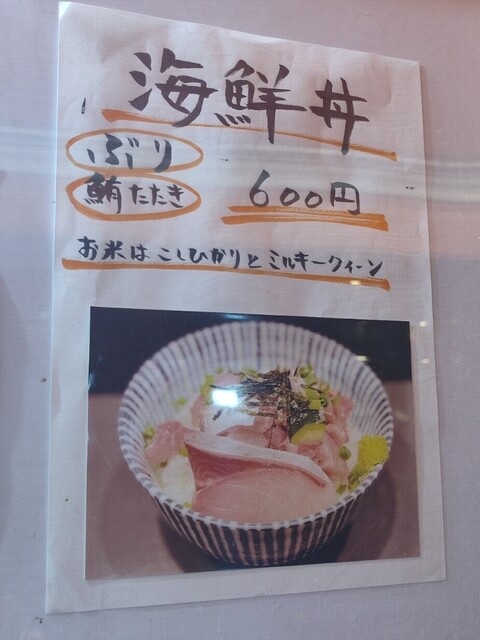 海鮮丼
ぶり
鮪たたき
600円
お米はこしひかりとミルキークィーン